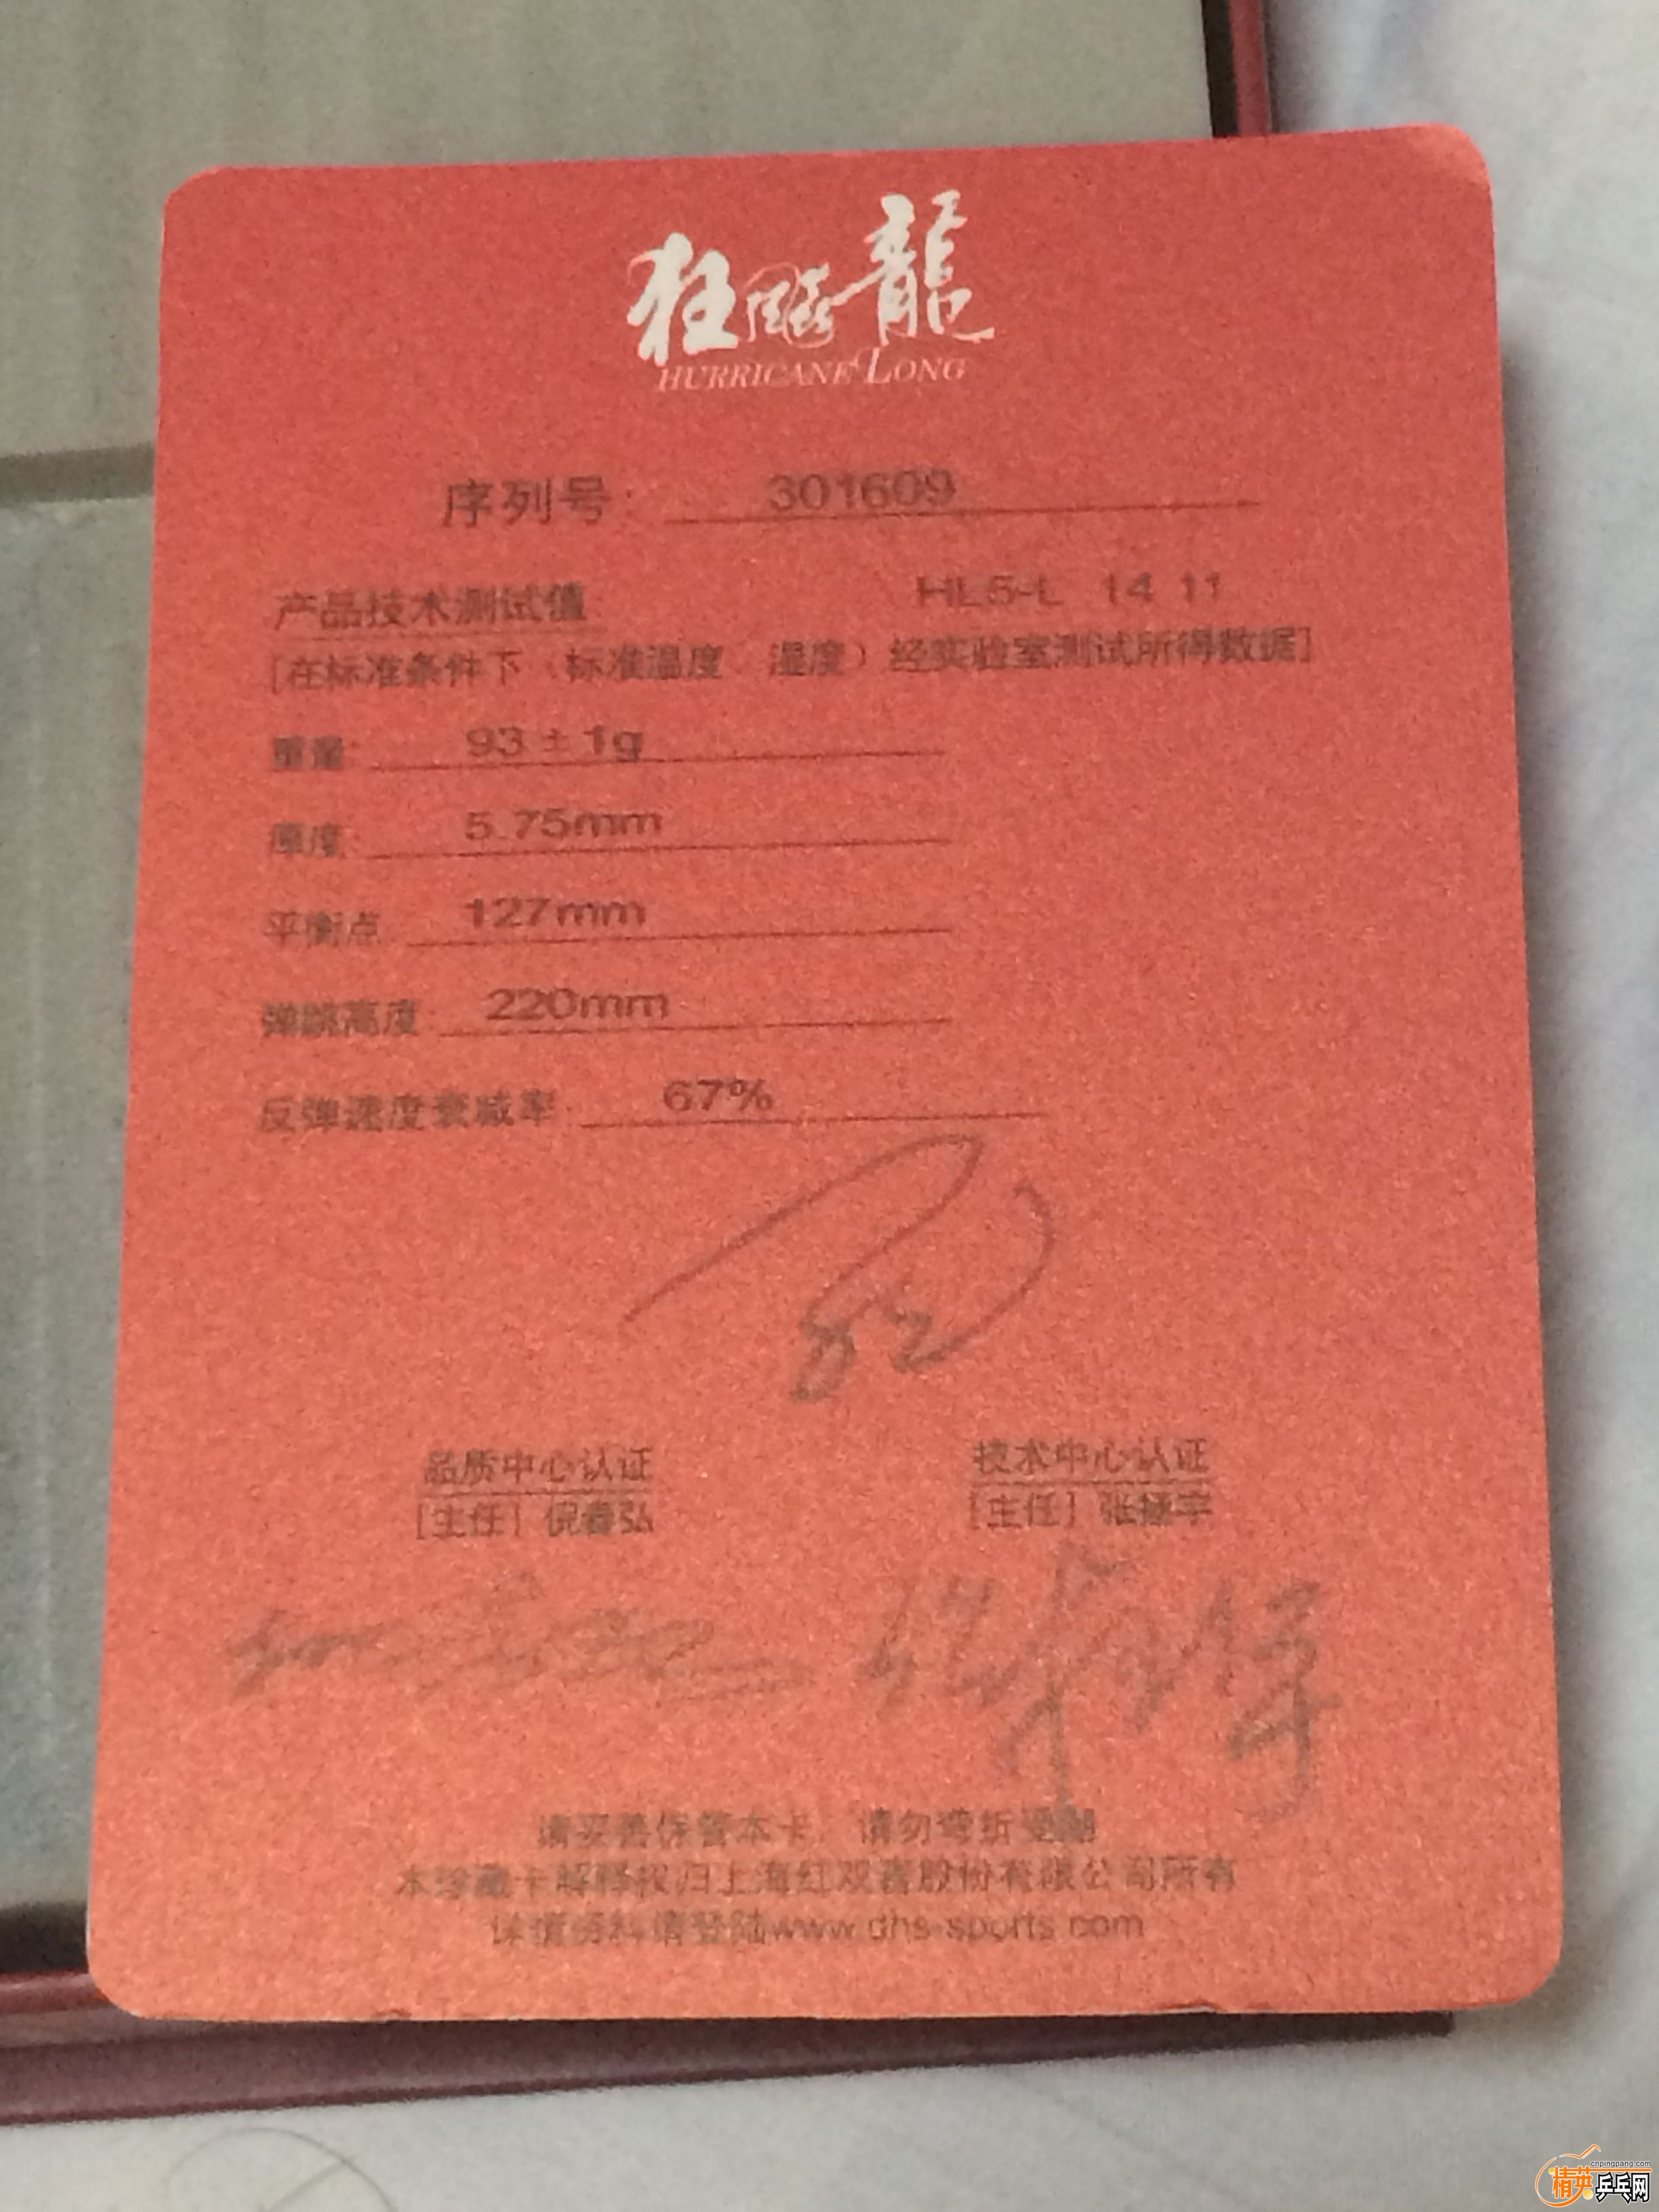 狂飚龍
HURRICANE LONG
序列号: 301609
产品技术测试值 HL5-L 14 11
[在标准条件下（标准温度 湿度）经实验室测试所得数据]
重量: 93±1g
厚度: 5.75mm
平衡点 127mm
弹跳高度: 220mm
反弹速度衰减率: 67%
品质中心认证 技术中心认证
[主任] 倪春弘 [主任] 张
请妥善保管本卡, 请勿弯折受潮
本珍藏卡解释权归上海红双喜股份有限公司所有
详情资料请登陆www.dhs-sports.com
cnpingpang.com
精英乒乓网